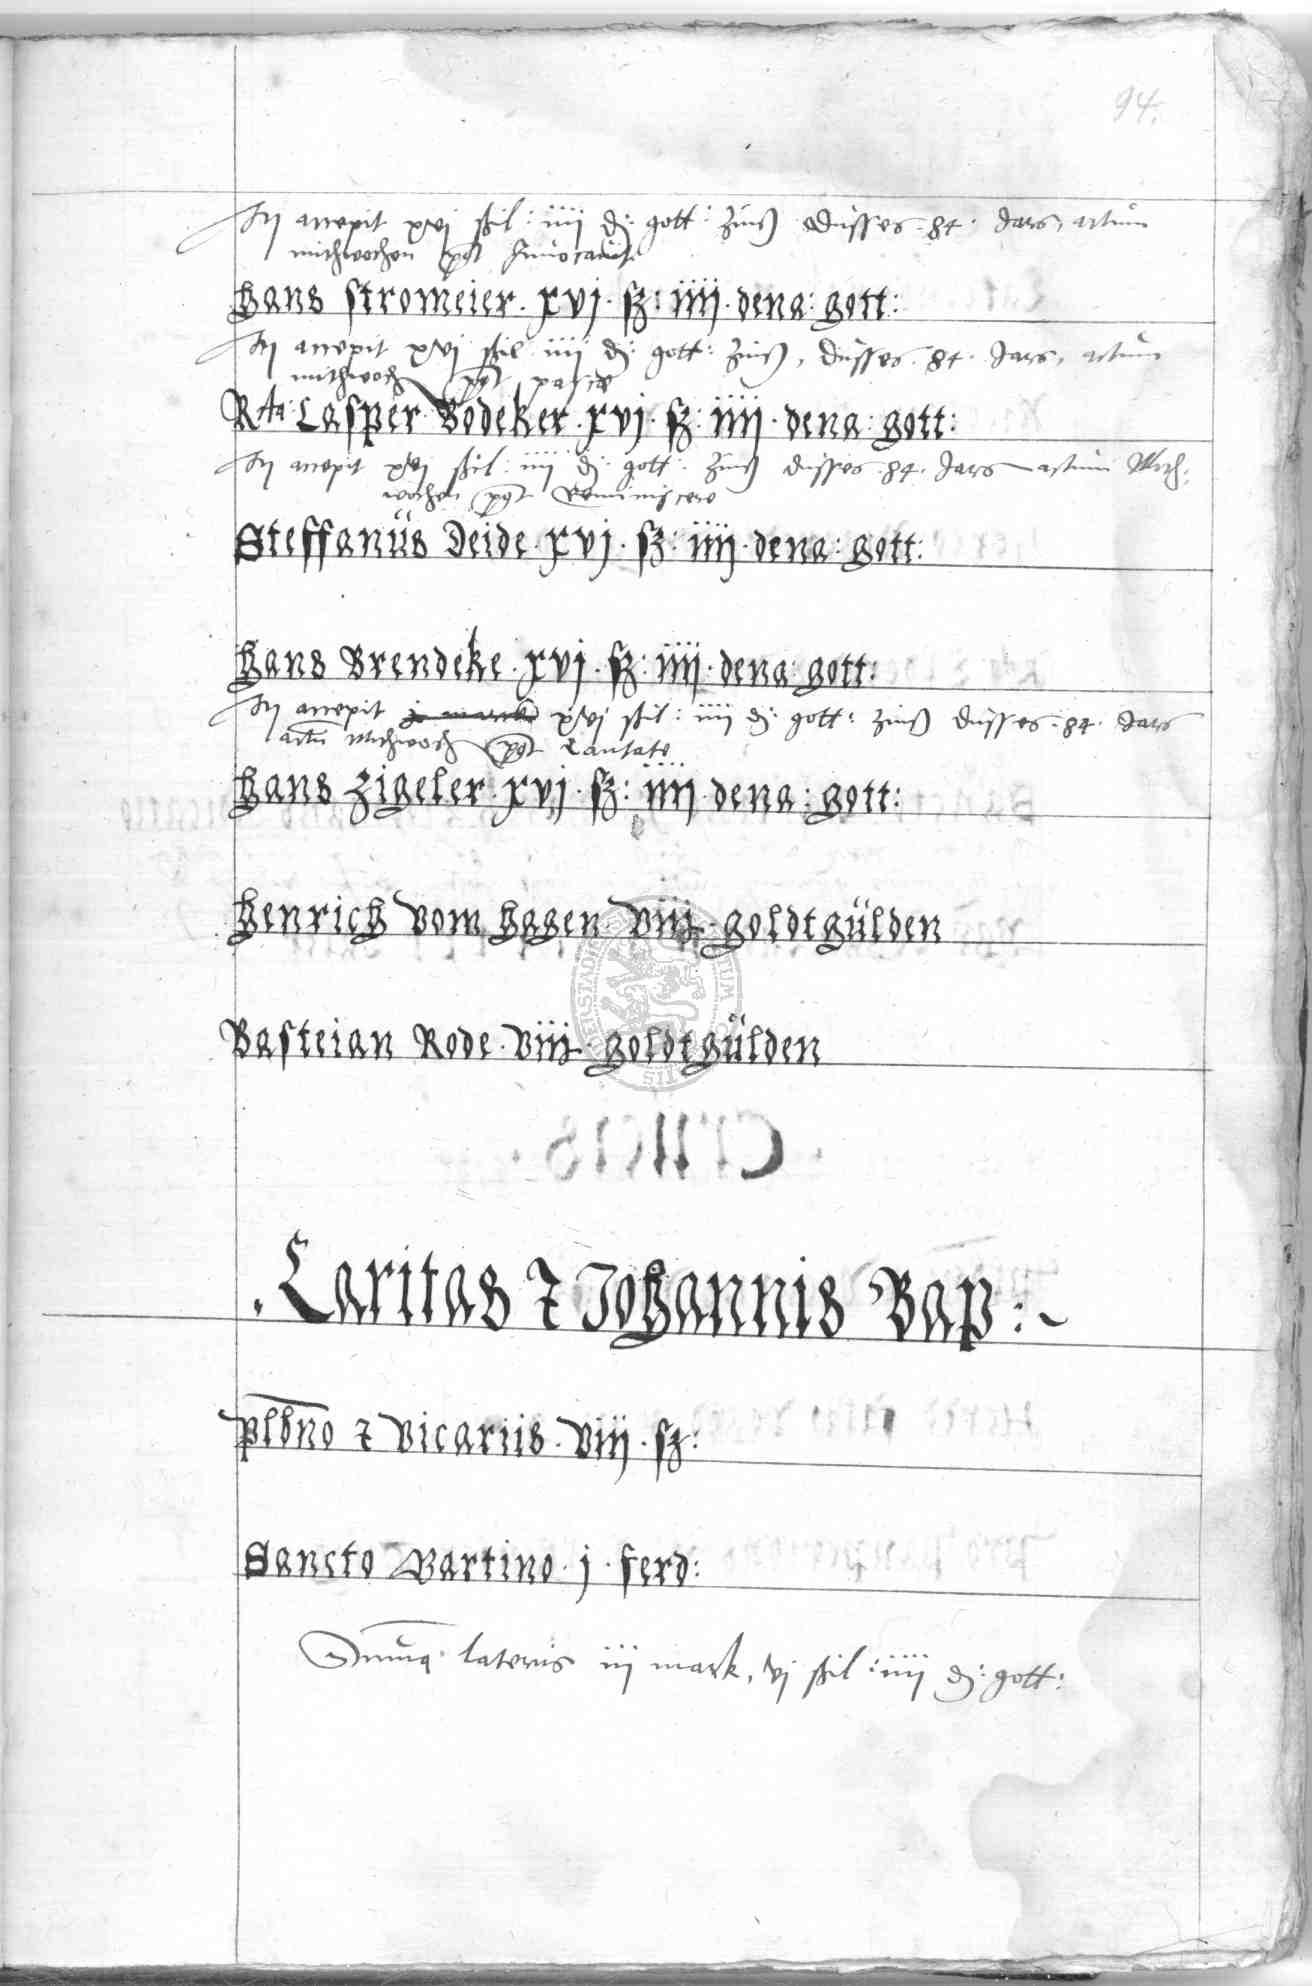 94.
Hy accepit xvj ßil: iiij d: gott: Zinß dusses .84. Jars, actum
mithwochen post Invocavit
Hans Stromeier . xvj . ß: iiij . dena: gott:
Hy accepit xvj ßil: iiij d: gott: Zinß, dusses .84. Jars, actum
mithwoch post pasce
Rda: Casper Bodeker . xvj . ß: iiij . dena: gott:
Hy accepit xvj ßil: iiij d: gott: Zinß dusses .84. Jars actum Mith,
wochen post Reminiscere
Steffanüs Deide . xvj . ß: iiij . dena: gott:
Hans Brendeke . xvj . ß: iiij . dena: gott:
Hy accepit j mark xvj ßil: iiij d: gott: Zinß dusses .84. Jars
actum Michwoch post Cantate
Hans Zigeler . xvj . ß: iiij . dena: gott:
Henrich vom Hagen viij . goldtgülden
Basteian Rode . viij . goldtgülden
. Caritas & Johannis Bap:~
plbno & vicariis . viij . ß:
Sancto Martino . j . ferd:
Summa lateris iij mark, vj ßil: iiij d: gott: